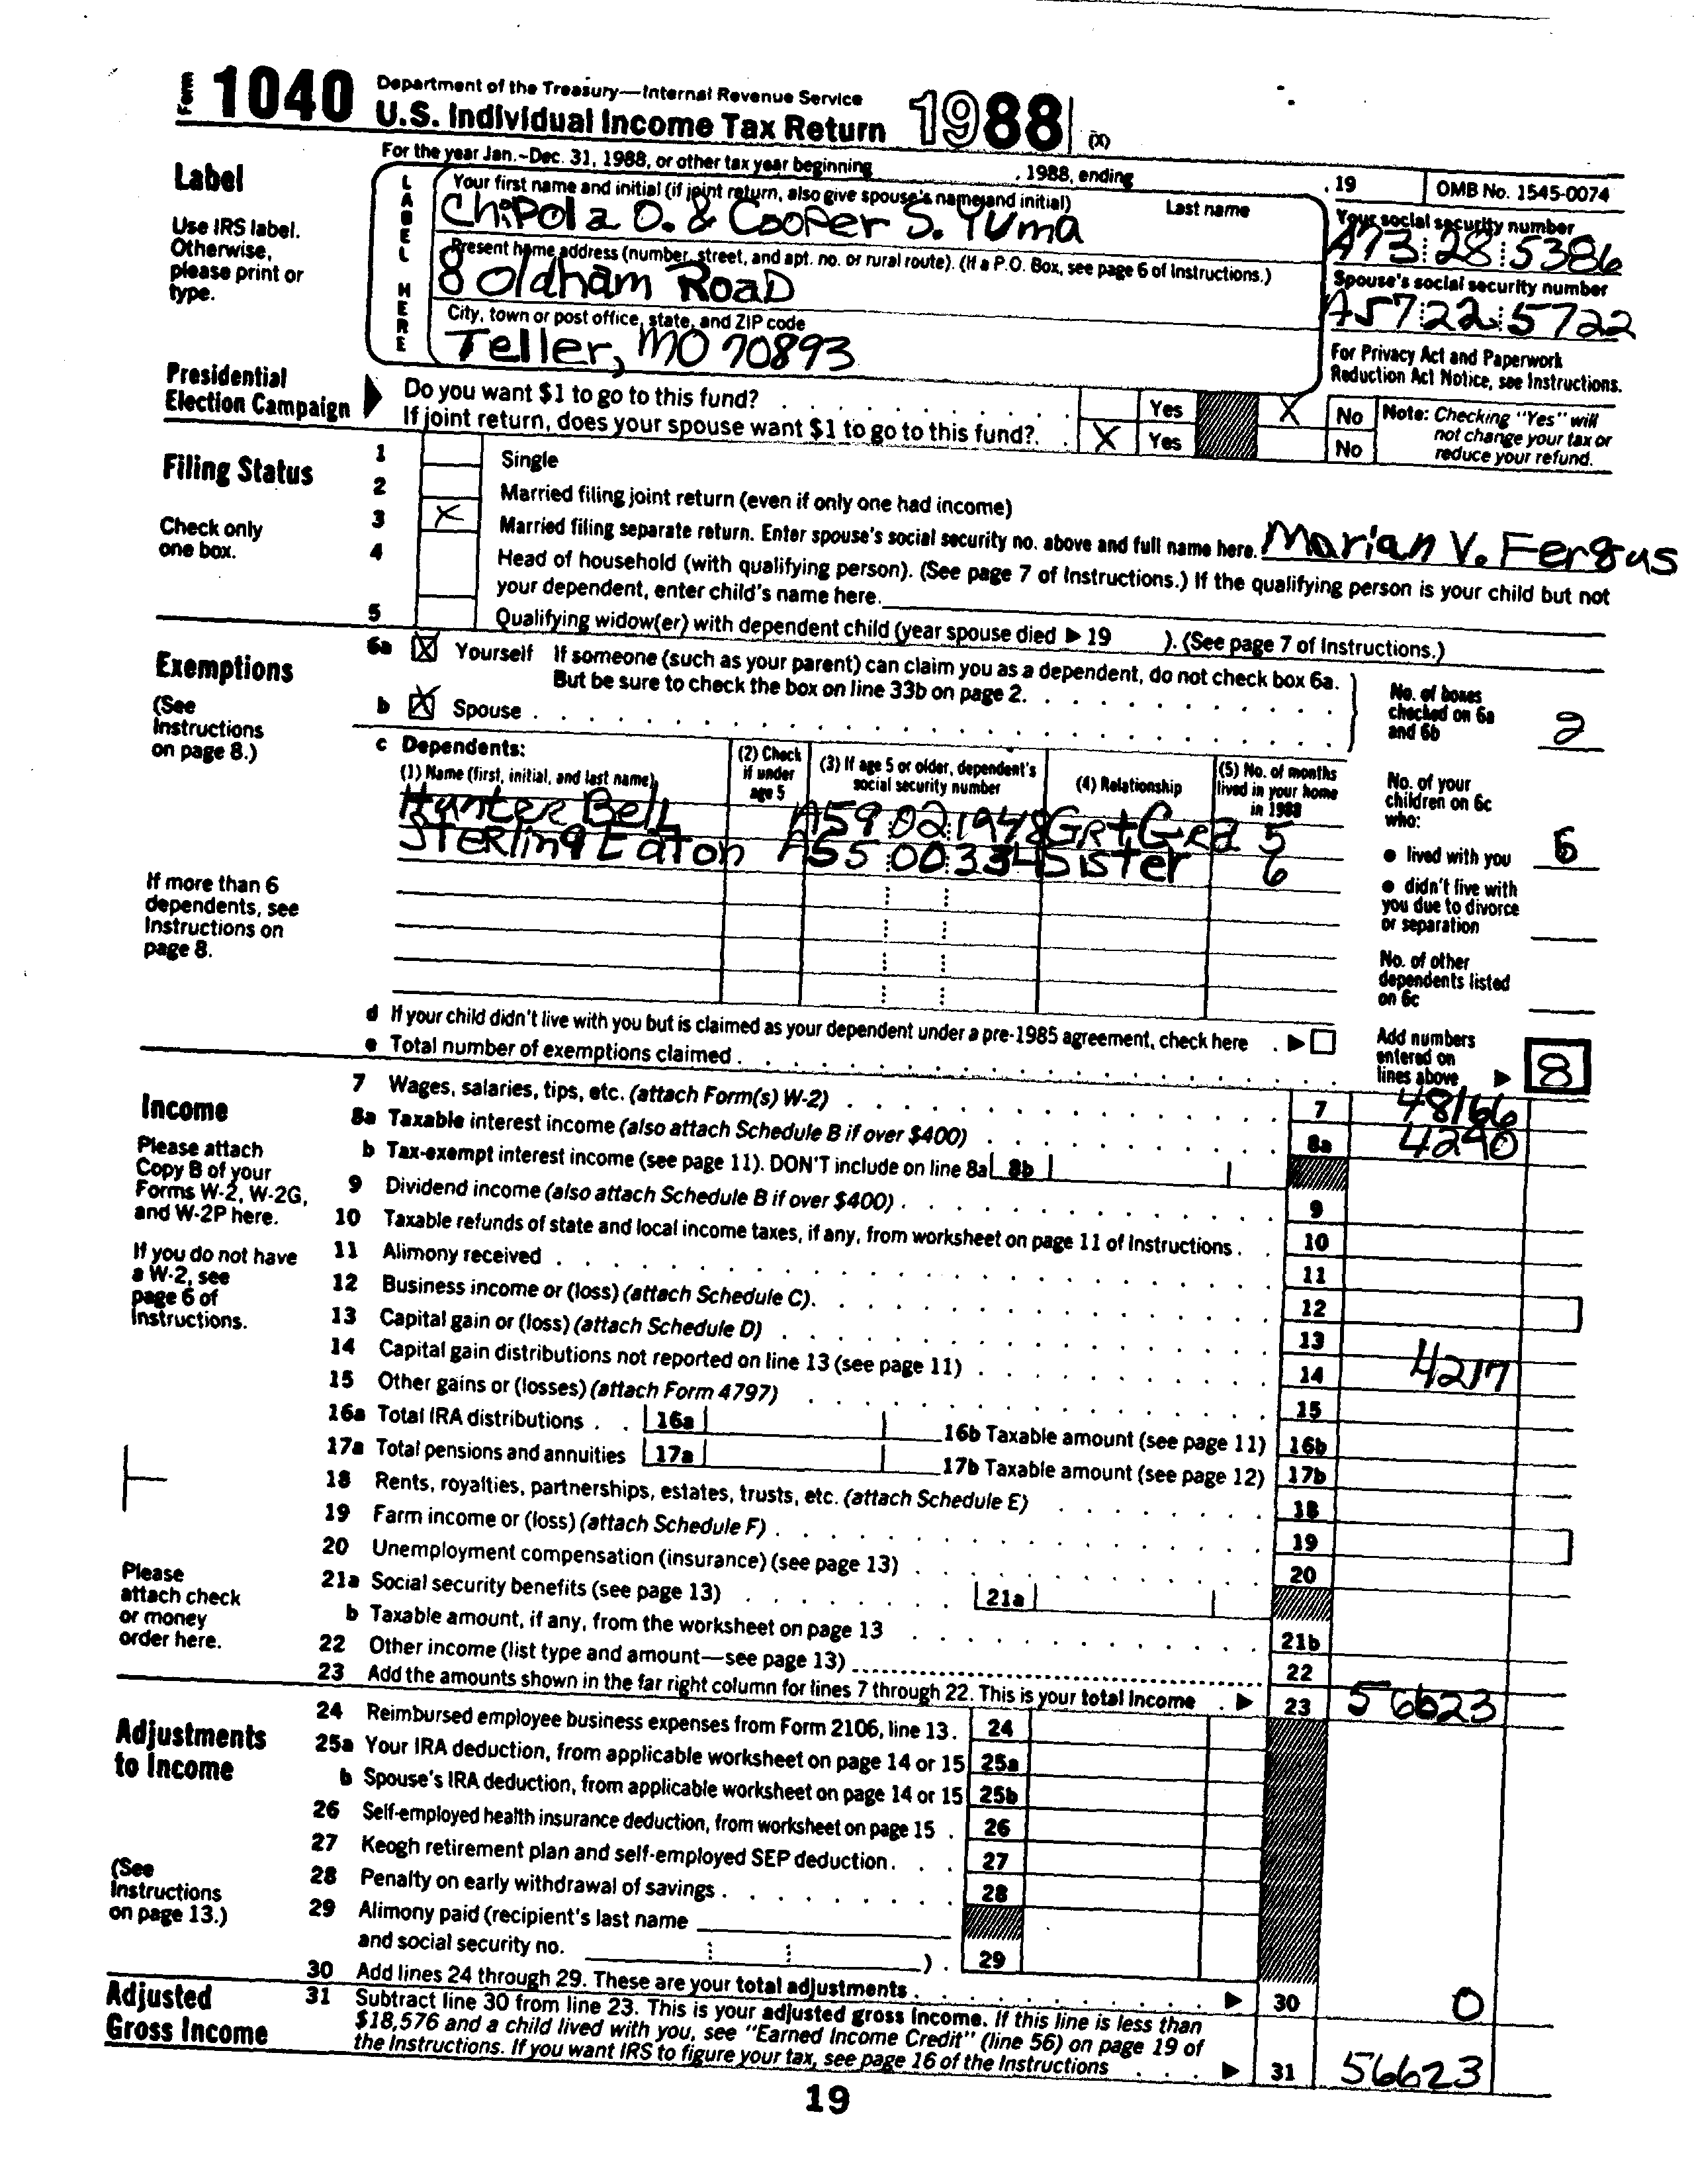 Form 1040 Department of the Treasury—Internal Revenue Service
U.S. Individual Income Tax Return 1988 (X)
For the year Jan.-Dec. 31, 1988, or other tax year beginning , 1988, ending , 19 OMB No. 1545-0074
Label
Use IRS label.
Otherwise,
please print or
type.
LABEL HERE
Your first name and initial (if joint return, also give spouse's name and initial) Last name
Chipola O. & Cooper S. Yuma
Your social security number
A73 28 5386
Present home address (number, street, and apt. no. or rural route). (If a P.O. Box, see page 6 of Instructions.)
8 Oldham Road
Spouse's social security number
A57 22 5722
City, town or post office, state, and ZIP code
Teller, MO 70893
For Privacy Act and Paperwork
Reduction Act Notice, see Instructions.
Presidential
Election Campaign
Do you want $1 to go to this fund? Yes X No
If joint return, does your spouse want $1 to go to this fund? X Yes No
Note: Checking "Yes" will
not change your tax or
reduce your refund.
Filing Status
Check only
one box.
1 Single
2 Married filing joint return (even if only one had income)
3 X Married filing separate return. Enter spouse's social security no. above and full name here. Marian V. Fergus
4 Head of household (with qualifying person). (See page 7 of Instructions.) If the qualifying person is your child but not
your dependent, enter child's name here.
5 Qualifying widow(er) with dependent child (year spouse died ▶ 19 ). (See page 7 of Instructions.)
Exemptions
(See
Instructions
on page 8.)
6a X Yourself If someone (such as your parent) can claim you as a dependent, do not check box 6a.
But be sure to check the box on line 33b on page 2.
b X Spouse
No. of boxes
checked on 6a
and 6b 2
c Dependents:
(1) Name (first, initial, and last name)
(2) Check
if under
age 5
(3) If age 5 or older, dependent's
social security number
(4) Relationship
(5) No. of months
lived in your home
in 1988
Hunter Bell A59 02 1948 GrtGrd 5
Sterling Eaton A55 00 334 Sister 6
No. of your
children on 6c
who:
● lived with you 6
● didn't live with
you due to divorce
or separation
No. of other
dependents listed
on 6c
If more than 6
dependents, see
Instructions on
page 8.
d If your child didn't live with you but is claimed as your dependent under a pre-1985 agreement, check here ▶
e Total number of exemptions claimed
Add numbers
entered on
lines above ▶ 8
Income
Please attach
Copy B of your
Forms W-2, W-2G,
and W-2P here.
If you do not have
a W-2, see
page 6 of
Instructions.
Please
attach check
or money
order here.
7 Wages, salaries, tips, etc. (attach Form(s) W-2) 7 48166
8a Taxable interest income (also attach Schedule B if over $400) 8a 4240
b Tax-exempt interest income (see page 11). DON'T include on line 8a 8b
9 Dividend income (also attach Schedule B if over $400) 9
10 Taxable refunds of state and local income taxes, if any, from worksheet on page 11 of Instructions 10
11 Alimony received 11
12 Business income or (loss) (attach Schedule C) 12
13 Capital gain or (loss) (attach Schedule D) 13
14 Capital gain distributions not reported on line 13 (see page 11) 14 4217
15 Other gains or (losses) (attach Form 4797) 15
16a Total IRA distributions 16a 16b Taxable amount (see page 11) 16b
17a Total pensions and annuities 17a 17b Taxable amount (see page 12) 17b
18 Rents, royalties, partnerships, estates, trusts, etc. (attach Schedule E) 18
19 Farm income or (loss) (attach Schedule F) 19
20 Unemployment compensation (insurance) (see page 13) 20
21a Social security benefits (see page 13) 21a
b Taxable amount, if any, from the worksheet on page 13 21b
22 Other income (list type and amount—see page 13) 22
23 Add the amounts shown in the far right column for lines 7 through 22. This is your total income ▶ 23 56623
Adjustments
to Income
(See
Instructions
on page 13.)
24 Reimbursed employee business expenses from Form 2106, line 13. 24
25a Your IRA deduction, from applicable worksheet on page 14 or 15 25a
b Spouse's IRA deduction, from applicable worksheet on page 14 or 15 25b
26 Self-employed health insurance deduction, from worksheet on page 15 26
27 Keogh retirement plan and self-employed SEP deduction 27
28 Penalty on early withdrawal of savings 28
29 Alimony paid (recipient's last name
and social security no. ) 29
30 Add lines 24 through 29. These are your total adjustments ▶ 30 0
Adjusted
Gross Income
31 Subtract line 30 from line 23. This is your adjusted gross income. If this line is less than
$18,576 and a child lived with you, see "Earned Income Credit" (line 56) on page 19 of
the Instructions. If you want IRS to figure your tax, see page 16 of the Instructions ▶ 31 56623
19